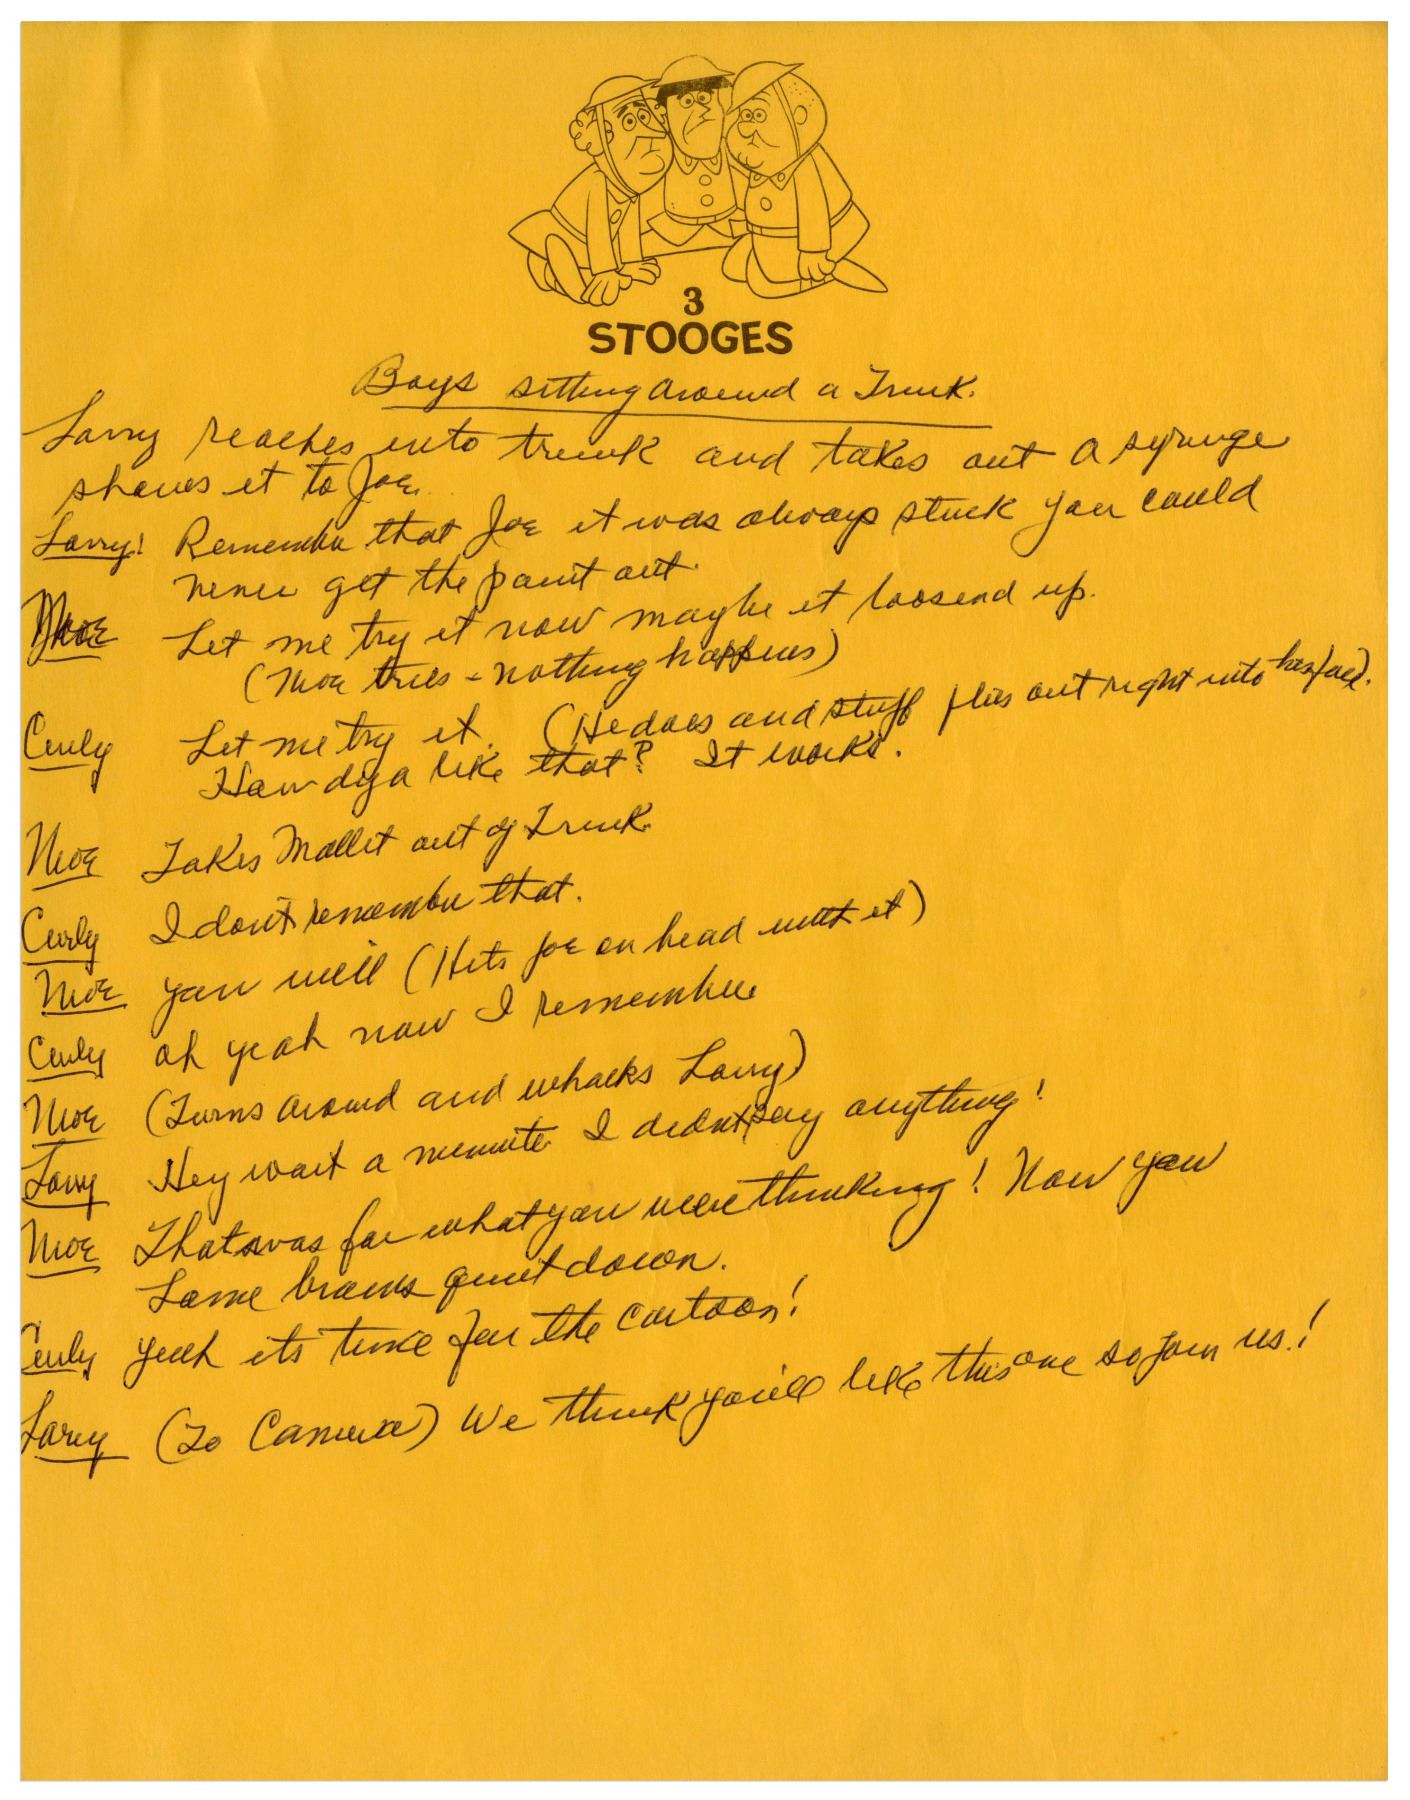 3
STOOGES
Boys sitting around a Trunk.
Larry reaches into trunk and takes out a syringe
shows it to Joe.
Larry! Remember that Joe it was always stuck you could
never get the paint out.
Moe Let me try it now maybe it loosend up.
(Moe tries - nothing happens)
Curly Let me try it. (He does and stuff flies out right into his face).
How dya like that? It works.
Moe Takes Mallet out of Trunk.
Curly I don't remember that.
Moe you will (Hits Joe on head with it)
Curly oh yeah now I remember
Moe (Turns around and whacks Larry)
Larry Hey wait a minute I didn't say anything!
Moe That was for what you were thinking! Now you
Lame brains quiet down.
Curly yeah its time for the cartoon!
Larry (To Camera) We think you'll like this one so join us.!